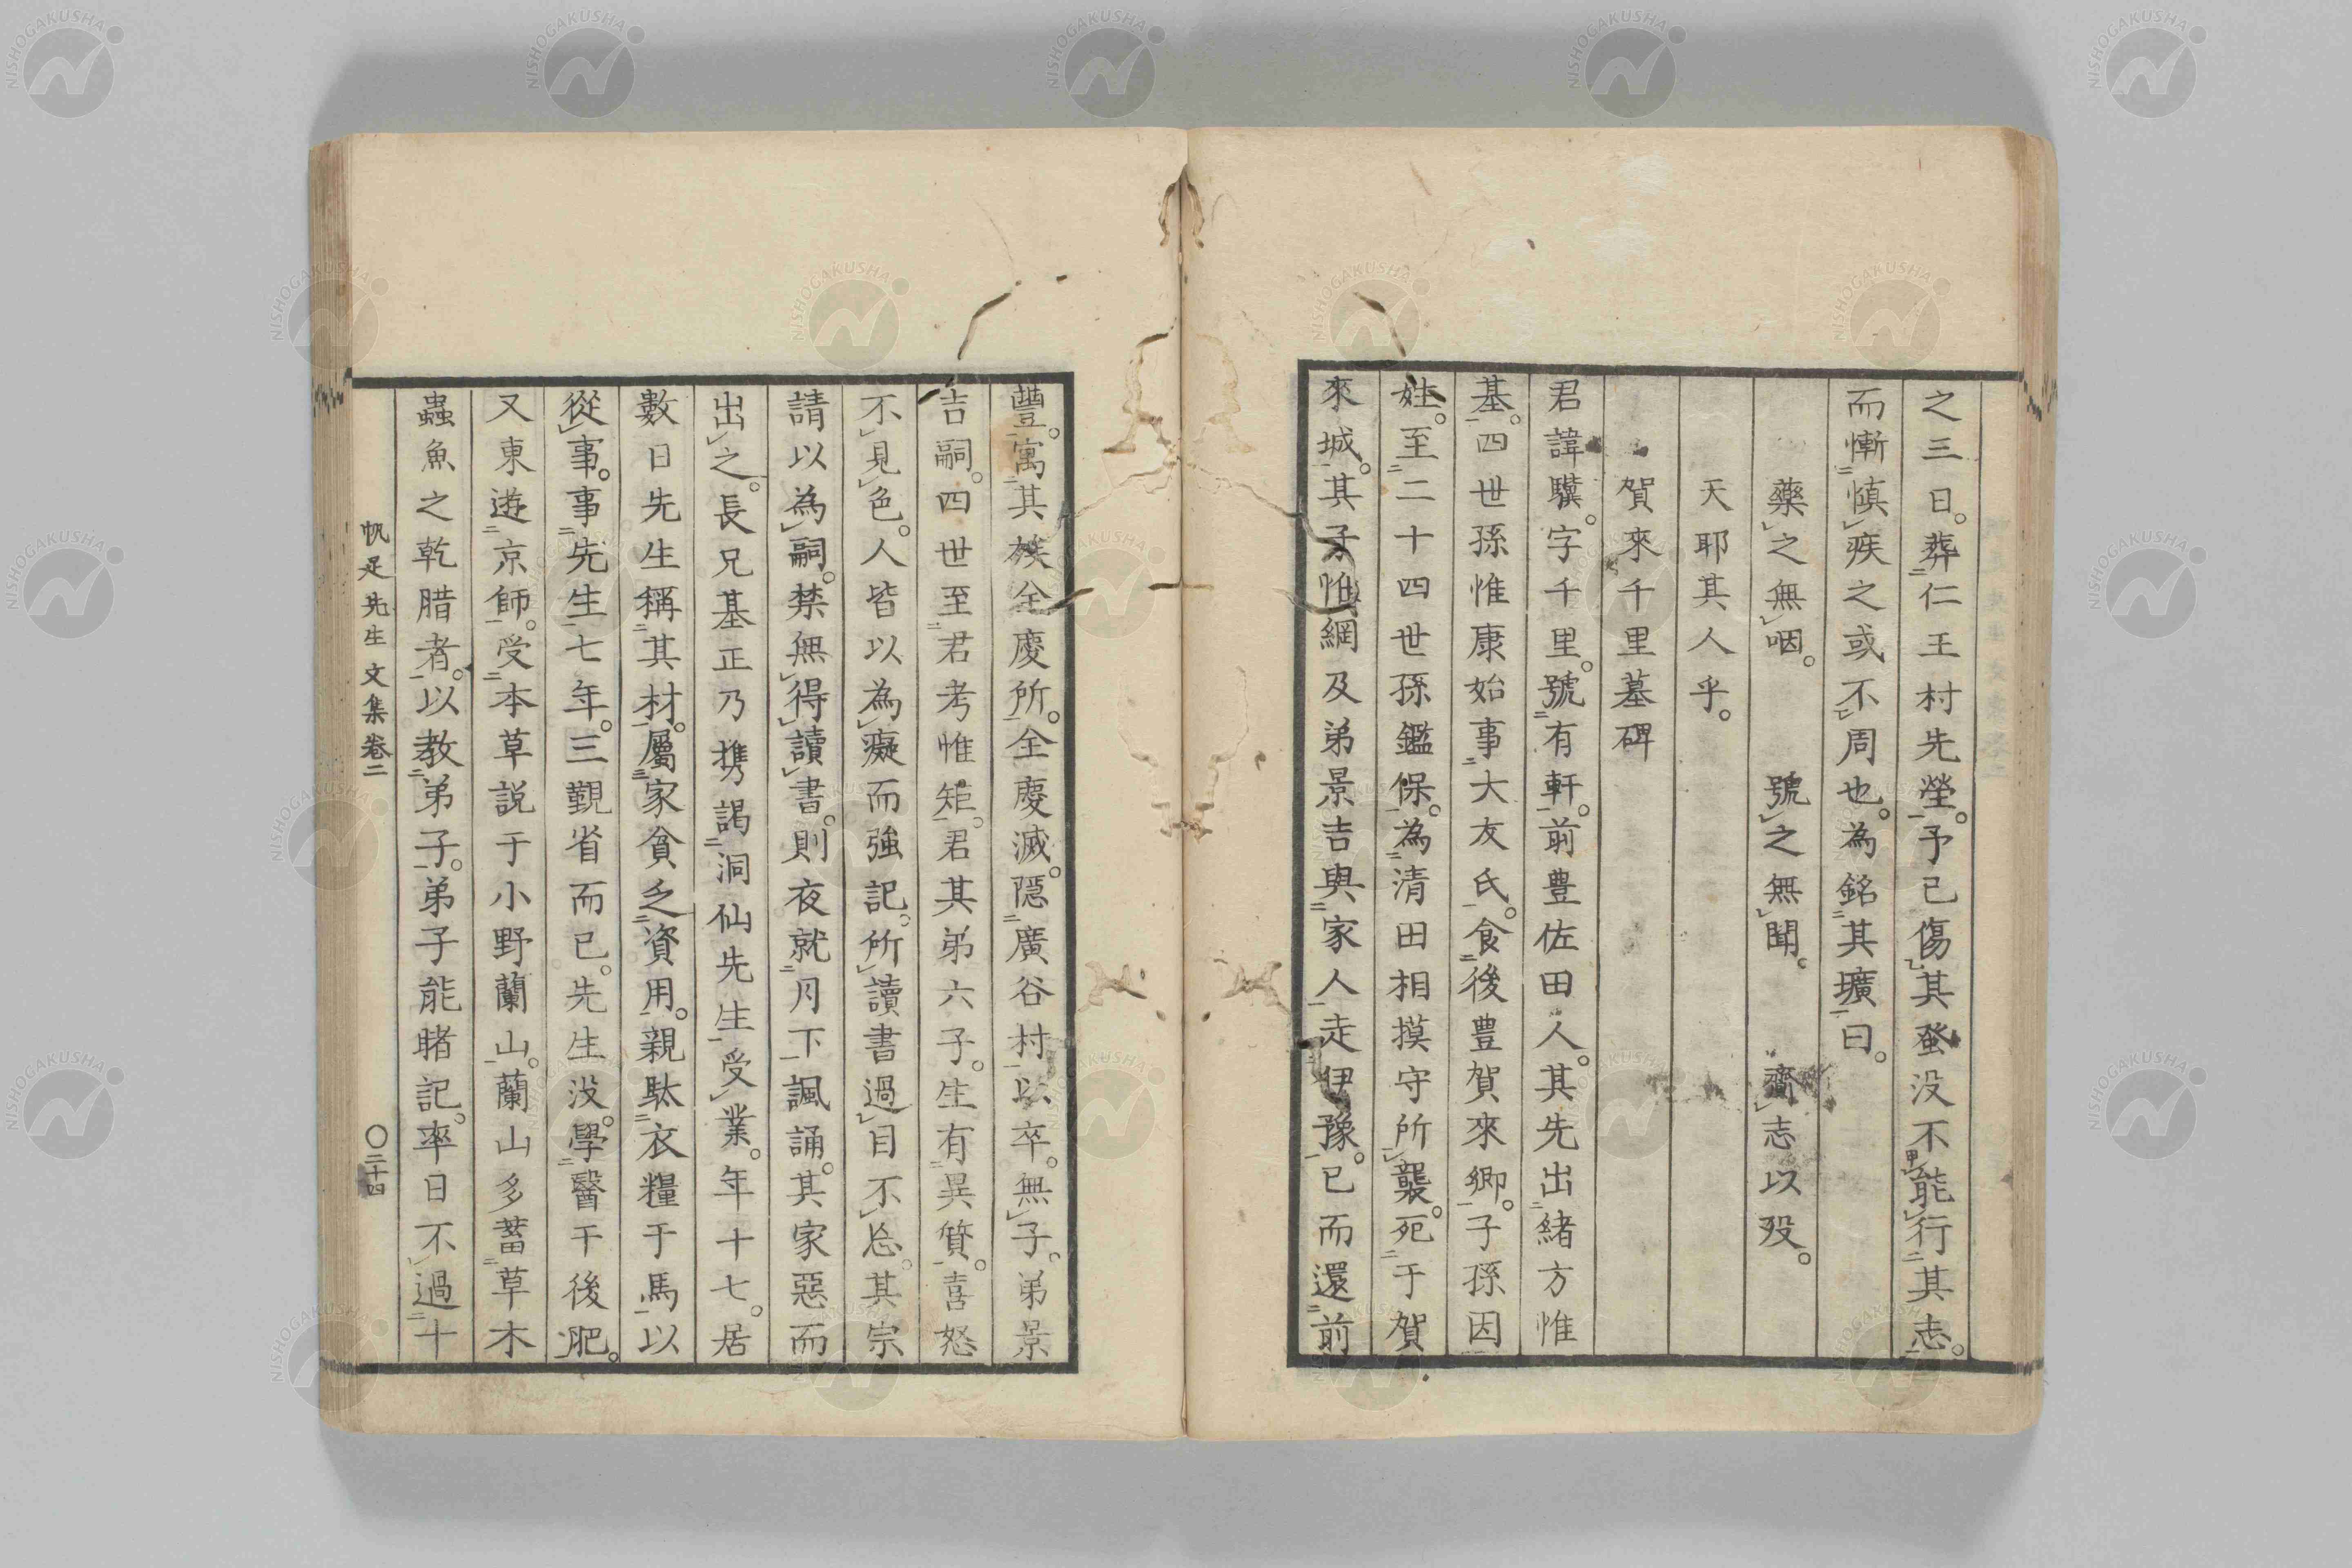 之三日。葬仁王村先塋。予已傷其蚤没不能行其志。
而慚慎疾之或不周也。為銘其壙曰。
藥之無咽。 號之無聞。 齎志以歿。
天耶其人乎。
賀來千里墓碑
君諱驥。字千里。號有軒。前豊佐田人。其先出緒方惟
基。四世孫惟康始事大友氏。食後豊賀來鄉。子孫因
姓。至二十四世孫鑑保。為清田相摸守所襲。死于賀
來城。其子惟綱及弟景吉與家人走伊豫。已而還前
豐。寓其族全慶所。全慶滅。隱廣谷村以卒。無子。弟景
吉嗣。四世至君考惟矩。君其弟六子。生有異質。喜怒
不見色。人皆以為癡而強記。所讀書過目不忘。其宗
請以為嗣。禁無得讀書。則夜就月下諷誦。其家惡而
出之。長兄基正乃携謁洞仙先生受業。年十七。居
數日先生稱其材。屬家貧乏資用。親馱衣糧于馬以
從事。事先生七年。三覲省而已。先生没。學醫于後肥。
又東遊京師。受本草説于小野蘭山。蘭山多蓄草木
蟲魚之乾腊者。以教弟子。弟子能睹記。率日不過十
帆足先生文集卷二 〇二十四
NISHOGAKUSHA